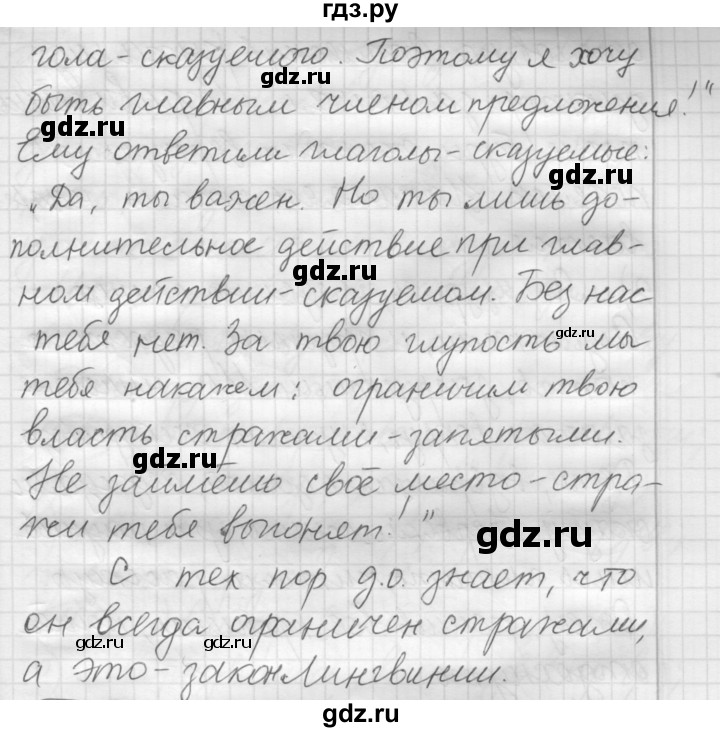 гдз.ру
гола-сказуемого. Поэтому я хочу
быть главным членом предложения!"
gdz.ru
Ему ответили глаголы-сказуемые:
gdz.ru
„Да, ты важен. Но ты лишь до-
полнительное действие при глав-
gdz.ru
ном действии-сказуемом. Без нас
тебя нет. За твою глупость мы
gdz.ru
тебя накажем: ограничим твою
власть стражами-запятыми.
gdz.ru
Не займёшь своё место-стра-
жи тебя выгонят!"
gdz.ru
С тех пор д.о. знает, что
он всегда ограничен стражами,
gdz.ru
gdz.ru
а это-закон Лингвинии.
gdz.ru